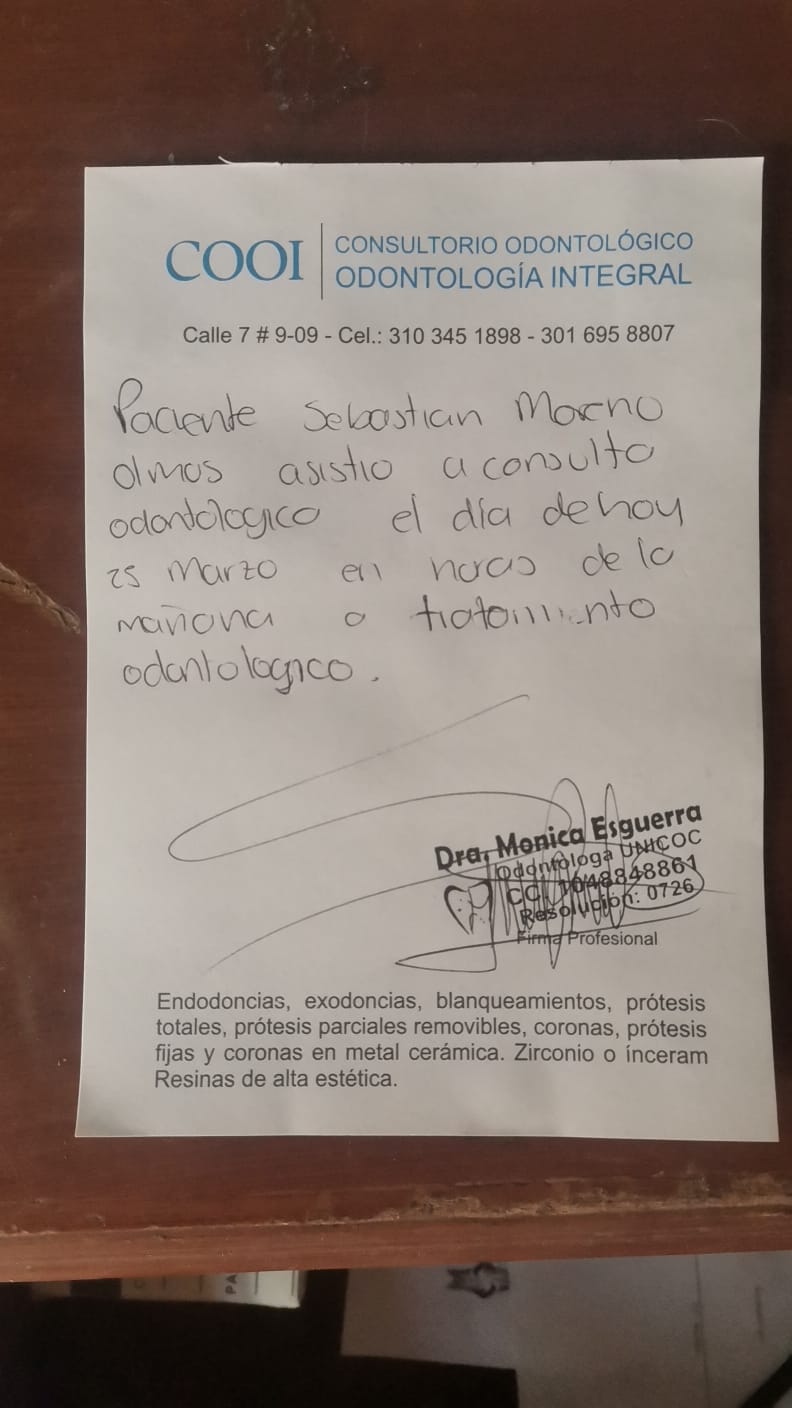 COOI
CONSULTORIO ODONTOLÓGICO
ODONTOLOGÍA INTEGRAL
Calle 7 # 9-09 - Cel.: 310 345 1898 - 301 695 8807
Paciente Sebastian Moreno
olmos asistio a consulta
odontologico el día de hoy
25 Marzo en horas de la
mañana a tratamiento
odontologico.
Dra. Monica Esguerra
Odontologa UNICOC
CC. 1048848861
Resolución: 0726
Firma Profesional
Endodoncias, exodoncias, blanqueamientos, prótesis
totales, prótesis parciales removibles, coronas, prótesis
fijas y coronas en metal cerámica. Zirconio o ínceram
Resinas de alta estética.